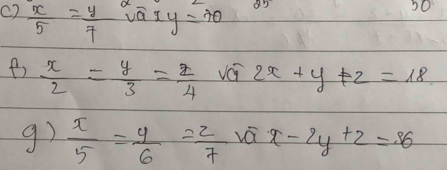 c) x/5 = y/7 và xy = 70
f) x/2 = y/3 = z/4 và 2x + y + z = 18
g) x/5 = y/6 = z/7 và x - 2y + z = 36